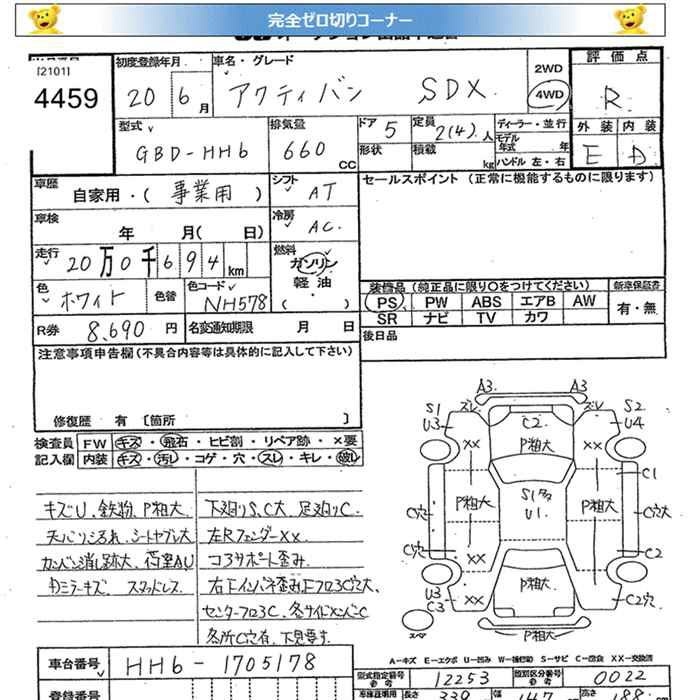 完全ゼロ切りコーナー
[2101]
4459
初度登録年月
20 6月
車名・グレード
アクティバン SDX
2WD
4WD
評価点
R
外装 内装
E D
型式
GBD-HH6
排気量
660 CC
ドア 5
形状
定員 2(4)人
積載 kg
ディーラー・並行
モデル年式 年
ハンドル 左・右
車歴
自家用・(事業用)
シフト
AT
セールスポイント (正常に機能するものに限ります)
車検
年 月( 日)
冷房
AC
走行
20万0千694km
燃料
ガソリン
軽油
( ・ )
色
ホワイト
色替
色コード
NH578
装備品 (純正品に限り○をつけてください)
新車保証書
PS PW ABS エアB AW
SR ナビ TV カワ
有・無
R券 8,690円
名変通知期限 月 日
後日品
注意事項申告欄(不具合内容等は具体的に記入して下さい)
修復歴 有 [箇所 ]
検査員記入欄
FW キズ・飛石・ヒビ割・リペア跡・×要
内装 キズ・汚し・コゲ・穴・スレ・キレ・破レ
キズU、鉄粉、P粗大
下廻りS、C大、足廻りC
シートヤブレ大
左RフェンダーXX
カンバン消し跡大、荷室AU
コアサポート歪み
キズ、スタッドレス
センターフロアC、各サイドメンバーC
各所C穴有、下見要す
A3 A3
S1 ズレ ズレ S2
U3 C2 U4
XX P粗大 XX
C1
P粗大 S1多 U1 P粗大
C穴 C穴大
C穴 C2
XX P粗大
U3 C3 XX C2穴
スペア
P粗大
A-キズ E-エクボ U-凹み W-補修跡 S-サビ C-腐食 XX-交換済
車台番号
HH6-1705178
型式指定番号 参考
12253
類別区分番号 参考
0022
登録番号
長さ 339
幅 147
高さ 188